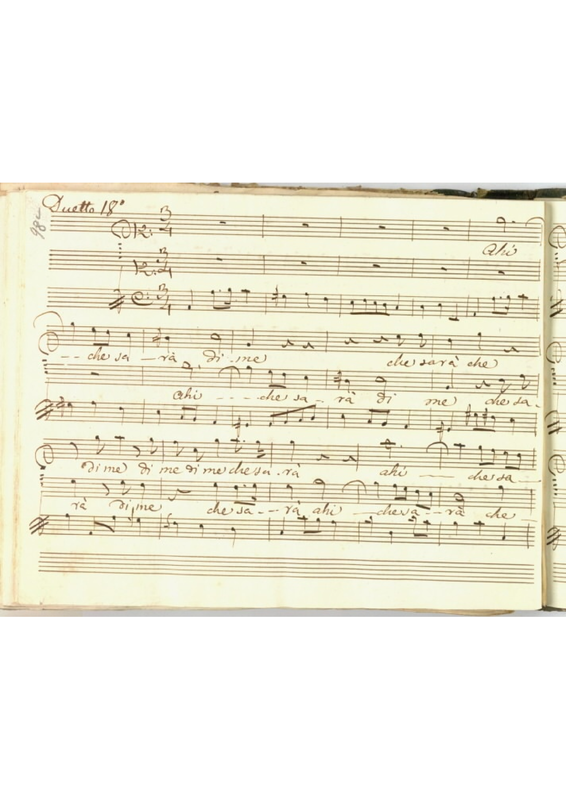 Duetto 18°
3/4
Ahi
3/4
3/4
-- che sa -- rà di me che sarà che
Ahi --- che sa -- rà di me che sa -
di me di me di me che sa - rà ahi -- che sa --
rà di me che sa -- rà ahi -- che sa -- rà che --